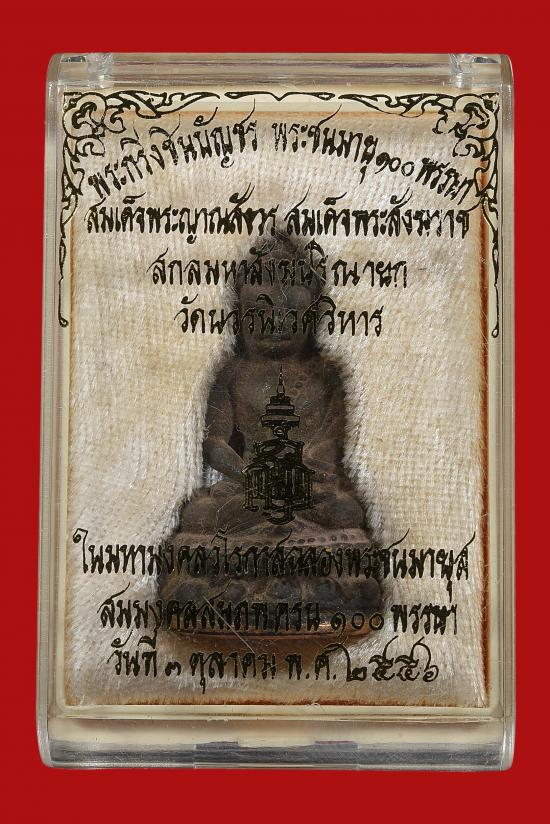 พระกริ่งชินบัญชร พระชนมายุ ๑๐๐ พรรษา
สมเด็จพระญาณสังวร สมเด็จพระสังฆราช
สกลมหาสังฆปริณายก
วัดบวรนิเวศวิหาร
ในมหามงคลวโรกาสฉลองพระชนมายุส
สมมงคลสมภพครบ ๑๐๐ พรรษา
วันที่ ๓ ตุลาคม พ.ศ. ๒๕๕๖